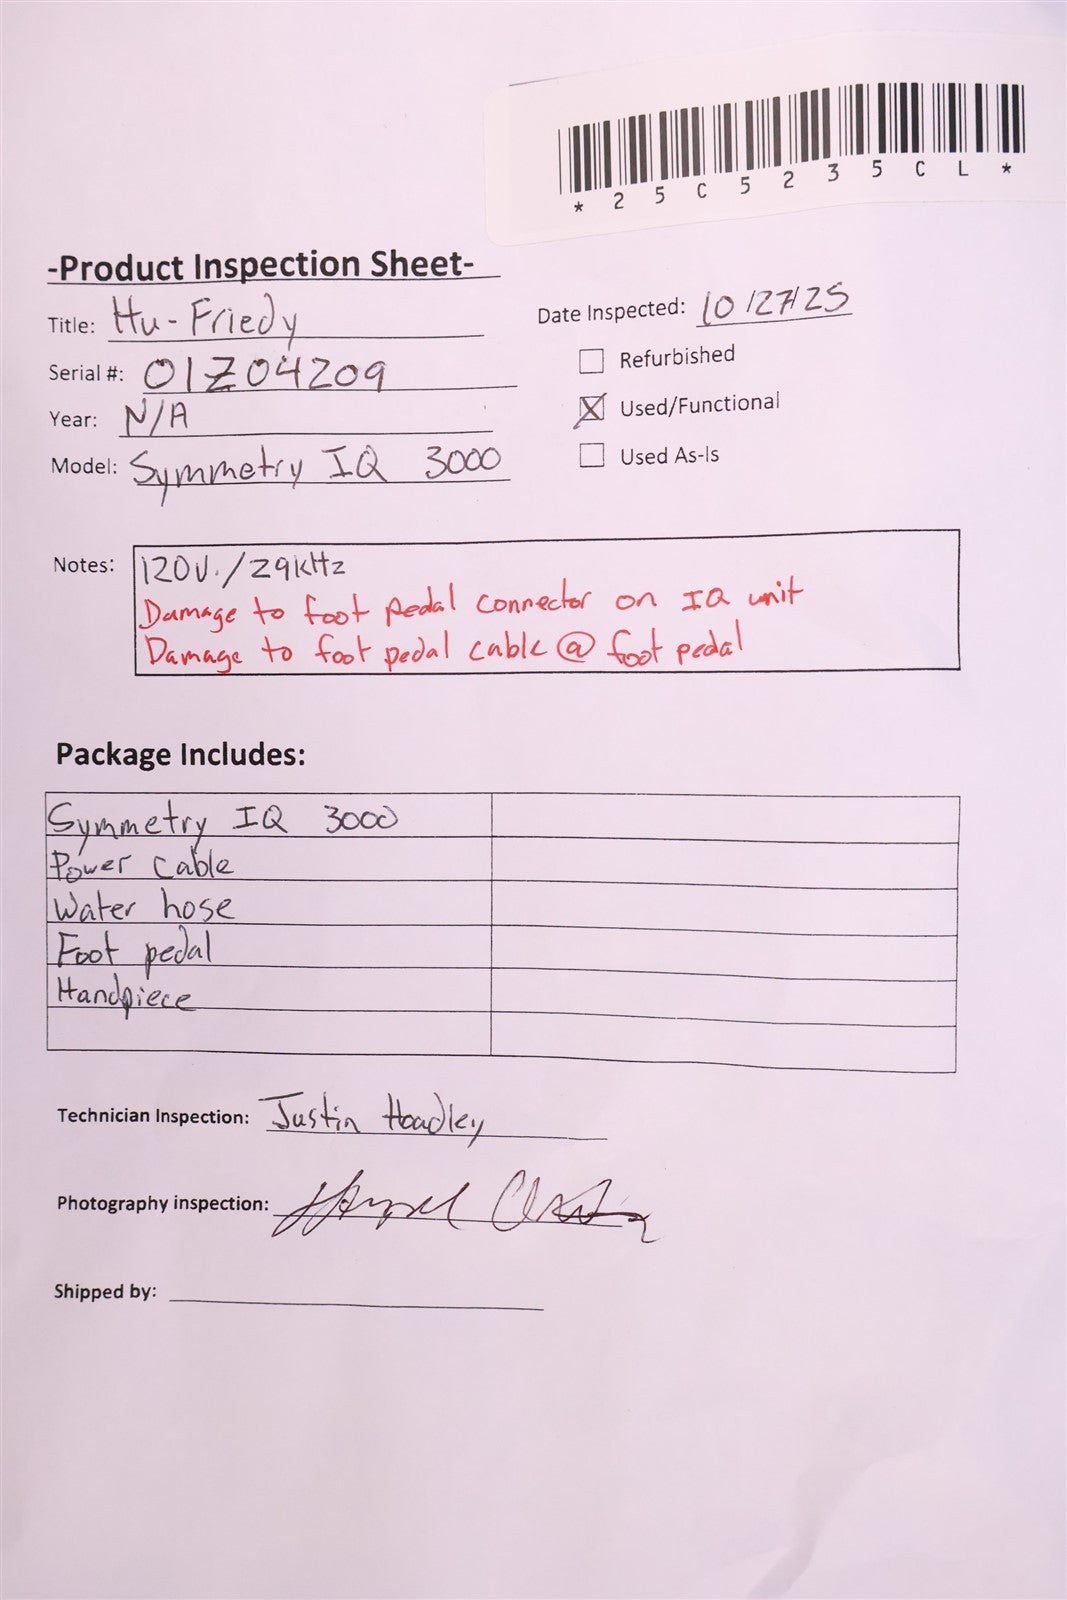 * 2 5 C 5 2 3 5 C L *
-Product Inspection Sheet-
Title: Hu-Friedy
Date Inspected: 10/27/25
Serial #: 01Z04209
Refurbished
Year: N/A
Used/Functional
Model: Symmetry IQ 3000
Used As-Is
Notes: 120V./29KHz
Damage to foot pedal connector on IQ unit
Damage to foot pedal cable @ foot pedal
Package Includes:
Symmetry IQ 3000
Power Cable
Water hose
Foot pedal
Handpiece
Technician Inspection: Justin Hoadley
Photography inspection:
Shipped by: